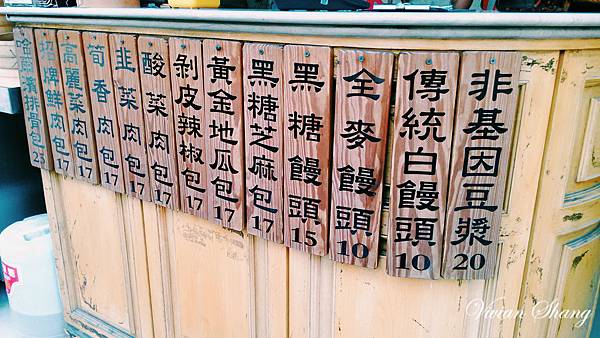 非基因豆漿 20
傳統白饅頭 10
全麥饅頭 10
黑糖饅頭 15
黑糖芝麻包 17
黃金地瓜包 17
剝皮辣椒包 17
酸菜肉包 17
韭菜肉包 17
筍香肉包 17
高麗菜肉包 17
招牌鮮肉包 17
排骨包 25
Vivian Shang